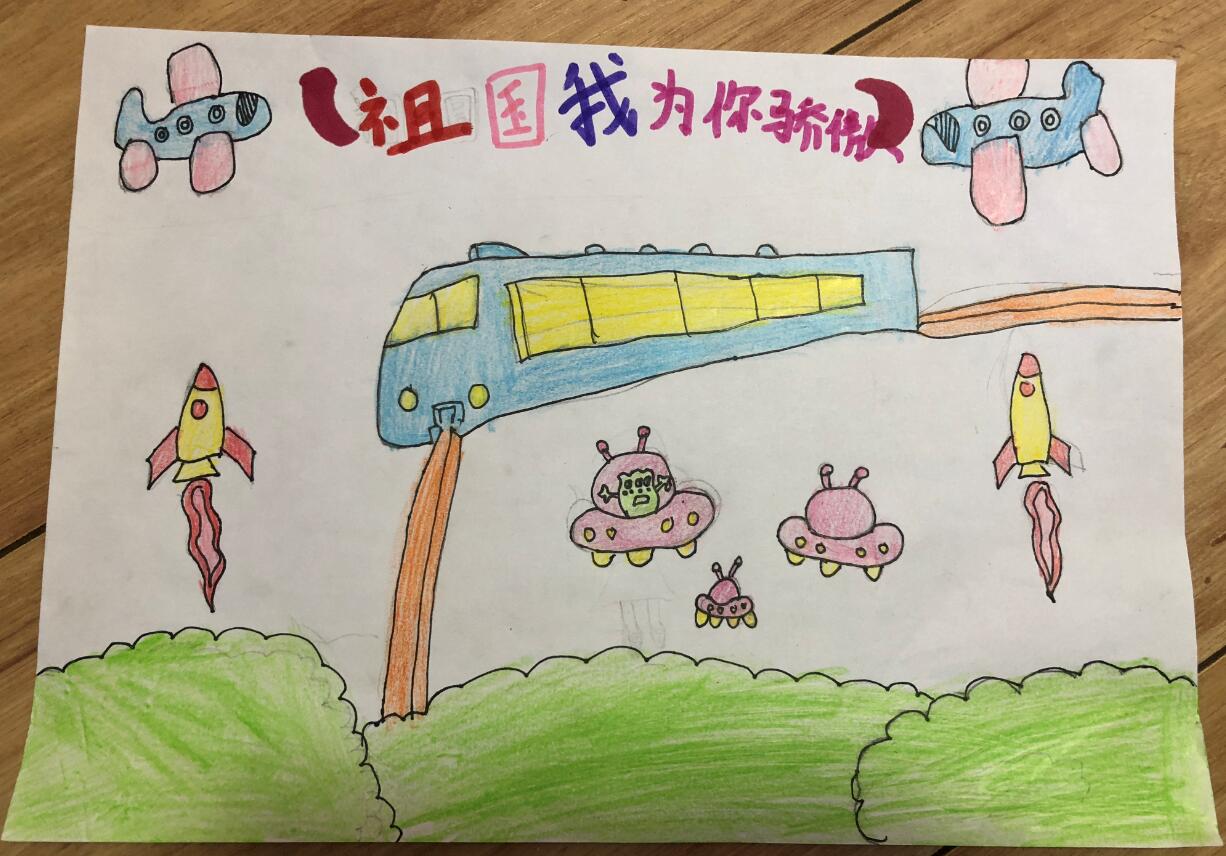 祖国我为你骄傲